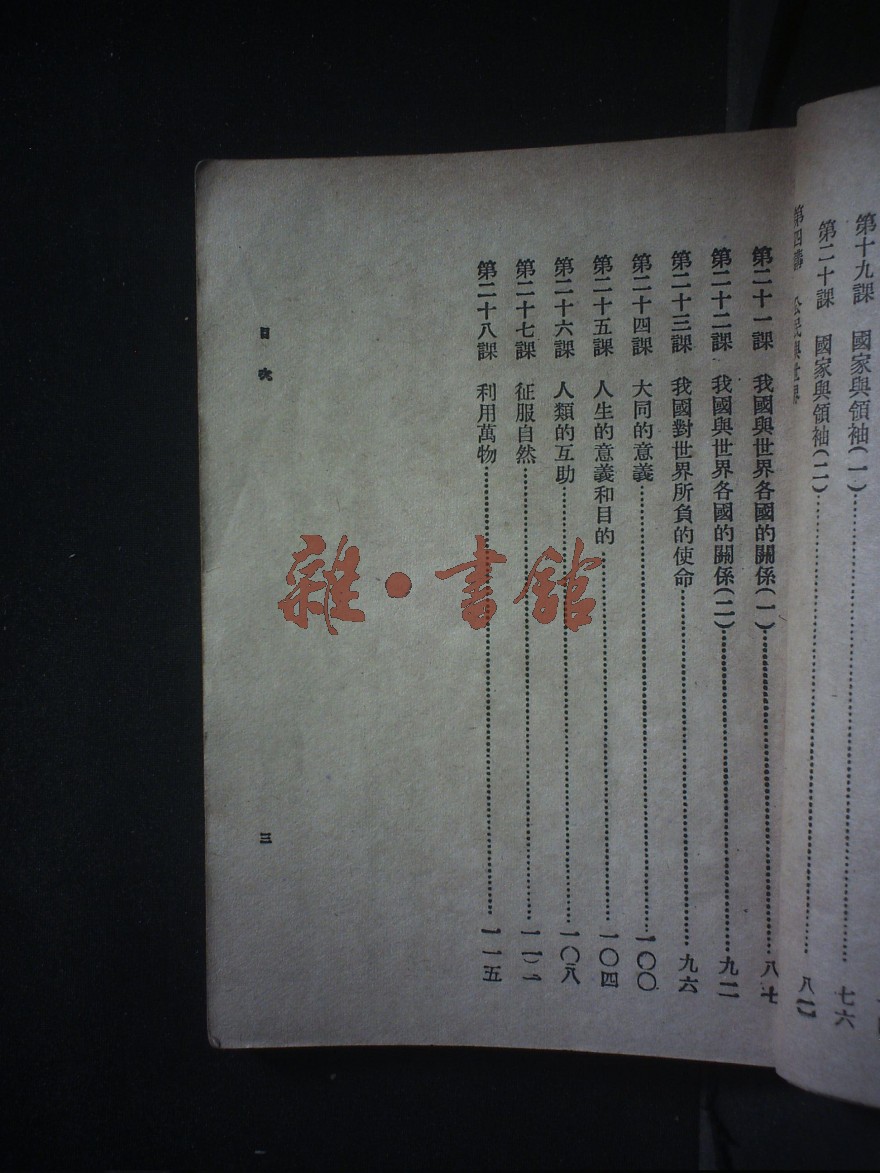 第十九課　國家與領袖(一)……七六
第二十課　國家與領袖(二)……八一
第四講　公民與世界
第二十一課　我國與世界各國的關係(一)……八七
第二十二課　我國與世界各國的關係(二)……九二
第二十三課　我國對世界所負的使命……九六
第二十四課　大同的意義……一〇〇
第二十五課　人生的意義和目的……一〇四
第二十六課　人類的互助……一〇八
第二十七課　征服自然……一一
第二十八課　利用萬物……一一五
目次
三
雜·書館